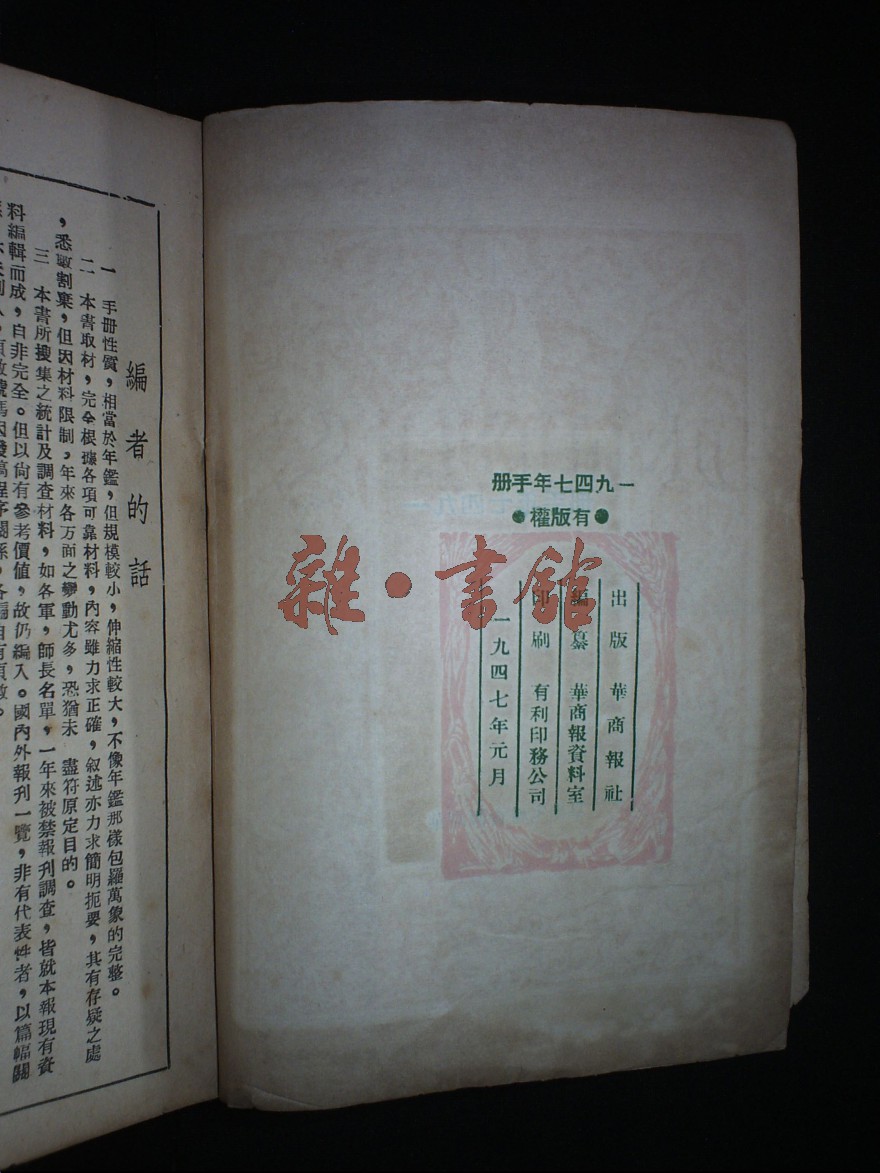 一九四七年手册
●有版權●
出版 華商報社
編纂 華商報資料室
印刷 有利印務公司
一九四七年元月
雜·書館
編者的話
一 手冊性質，相當於年鑑，但規模較小，伸縮性較大，不像年鑑那樣包羅萬象的完整。
二 本書取材，完全根據各項可靠材料，內容雖力求正確，叙述亦力求簡明扼要，其有存疑之處
，悉割棄，但因材料限制，年來各方面之變動尤多，恐猶未 盡符原定目的。
三 本書所搜集之統計及調查材料，如各軍，師長名單，一年來被禁報刊調查，皆就本報現有資
料編輯而成，自非完全。但以尙有參考價値，故仍編入。國內外報刊一覽，非有代表性者，以篇幅關